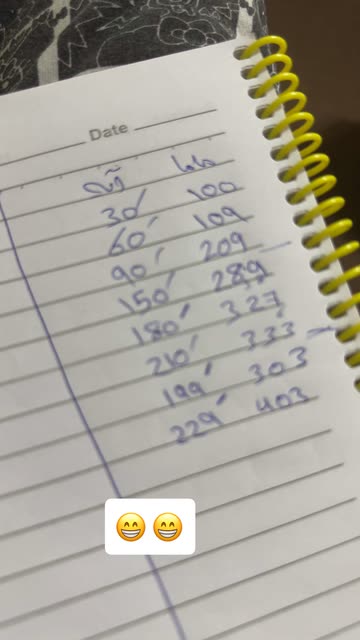 Date
30′ 100
60′ 109
90′ 209
150′ 289
180′ 327
210′ 333
199′ 303
229′ 403
😁😁